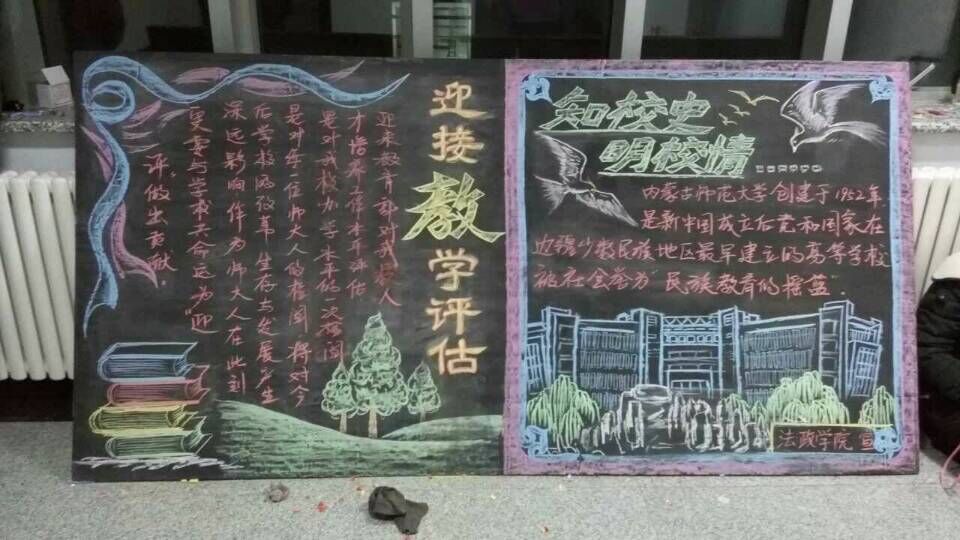 迎接教学评估
迎来教育部对我校人
才培养工作水平评估
是对我校办学水平的一次检阅
是对每一位师大人的检阅 将对今
后学校的改革生存与发展产生
深远影响 作为师大人在此刻
更要与学校共命运 为“迎
评”做出贡献.
知校史
明校情......
内蒙古师范大学创建于1952年
是新中国成立后党和国家在
边疆少数民族地区最早建立的高等学校
被社会誉为“民族教育的摇篮”.
法政学院 宣